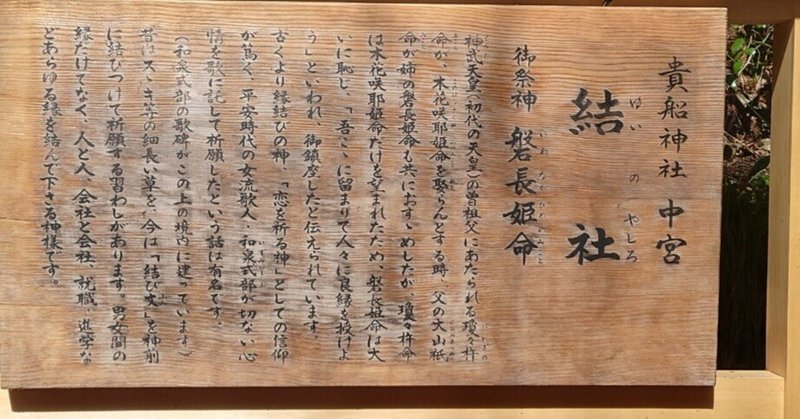 貴船神社 中宮
ゆいのやしろ
結社
いわながひめのみこと
御祭神 磐長姫命
神武天皇(初代の天皇)の曽祖父にあたられる瓊々杵
命が、木花咲耶姫命を娶らんとする時、父の大山祇
命が姉の磐長姫命も共におすゝめしたが、瓊々杵命
は木花咲耶姫命だけを望まれたため、磐長姫命は大
いに恥じ、「吾こゝに留まりて人々に良縁を授けよ
う」といわれ、御鎮座したと伝えられています。
古くより縁結びの神、「恋を祈る神」としての信仰
が篤く、平安時代の女流歌人・和泉式部が切ない心
情を歌に託して祈願したという話は有名です。
(和泉式部の歌碑がこの上の境内に建っています)
昔はスゝキ等の細長い草を、今は「結び文」を神前
に結びつけて祈願する習わしがあります。男女間の
縁だけでなく、人と人、会社と会社、就職、進学な
どあらゆる縁を結んで下さる神様です。